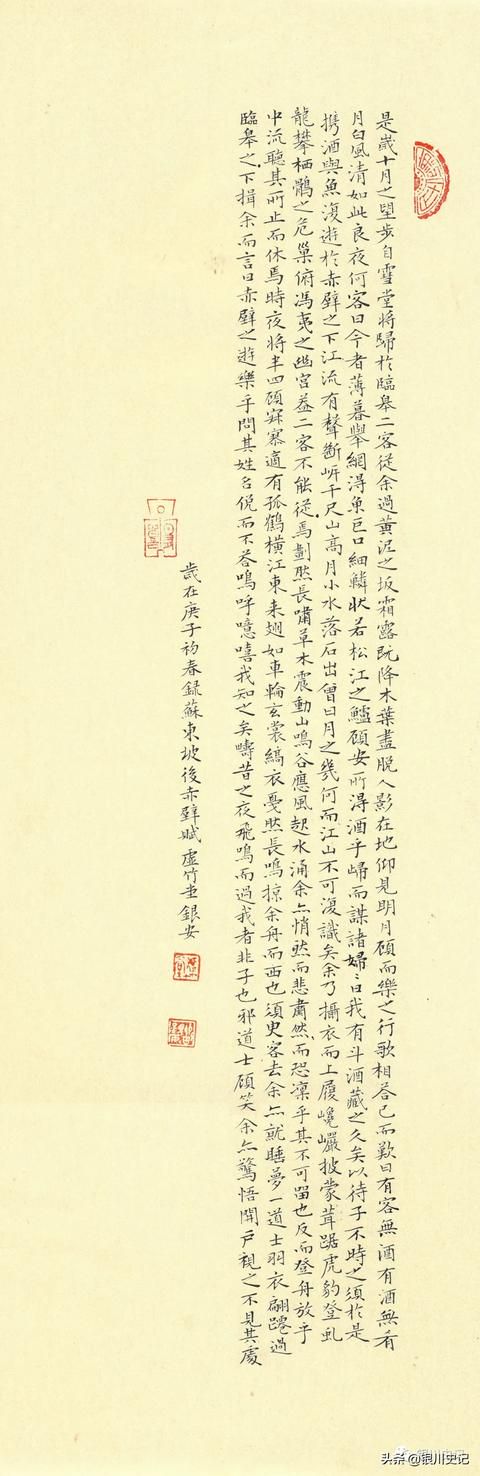 是歲十月之望步自雪堂將歸於臨皋二客從余過黃泥之坂霜露既降木葉盡脫人影在地仰見明月顧而樂之行歌相荅已而歎曰有客無酒有酒無肴
月白風清如此良夜何客曰今者薄暮舉網得魚巨口細鱗状若松江之鱸顧安所得酒乎歸而謀諸婦〻曰我有斗酒藏之久矣以待子不時之須於是
携酒與魚復遊於赤壁之下江流有聲斷岈千尺山高月小水落石出曾日月之幾何而江山不可復識矣余乃攝衣而上履巉巖披蒙茸踞虎豹登虬
龍攀栖鶻之危巢俯馮夷之幽宮葢二客不能從焉劃然長嘯草木震動山鳴谷應風起水涌余亦悄然而悲肅然而恐凛乎其不可留也反而登舟放乎
中流聽其所止而休焉時夜將半四顧寂寥適有孤鶴橫江東来翅如車輪玄裳縞衣戛然長鳴掠余舟而西也須臾客去余亦就睡夢一道士羽衣翩躚過
臨皋之下揖余而言曰赤壁之遊樂乎問其姓名俛而不荅嗚呼噫嘻我知之矣疇昔之夜飛鳴而過我者非子也邪道士顧笑余亦驚悟開戸視之不見其處
歲在庚子初春録蘇東坡後赤壁賦虛竹堂銀安
头条 @银川史记